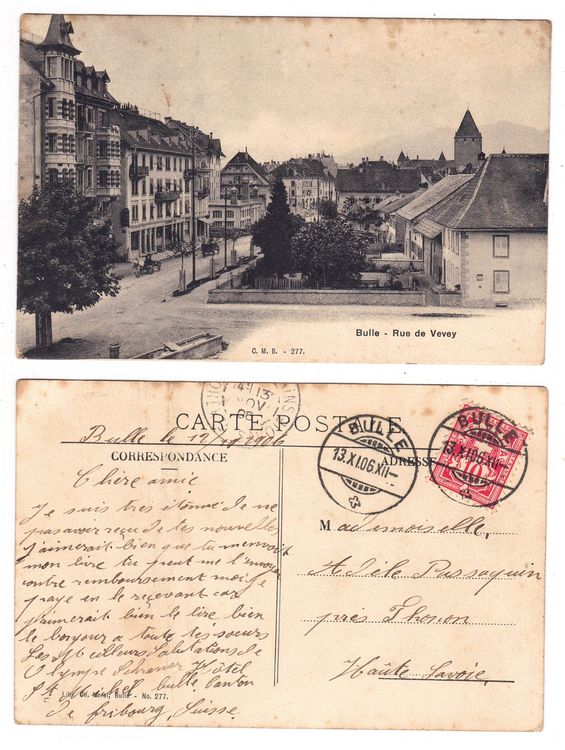 Bulle - Rue de Vevey
C. M. B. - 277.
CARTE POSTALE
Bulle le 12/11 1906
CORRESPONDANCE
ADRESSE
BULLE
13.XI.06.XII-
BULLE
13.XI.06.XII-
10
Chère amie
Je suis tres étonné de ne
pas avoir reçu de tes nouvelles
j'aimerait bien que tu m'envoit
mon livre tu peut me l'envoyer
contre remboursement moi je
paye en le reçevant car
j'aimerait bien le lire bien
le bonjour a toute tes soeurs
Les Meilleurs Salutations de
Olympe Hôtel
St Michel bulle Canton
de fribourg, Suisse.
Lib. Ch. Morel, Bulle - No. 277.
Mademoiselle,
Adèle Passaquin
près Thonon
Haûte Savoie.